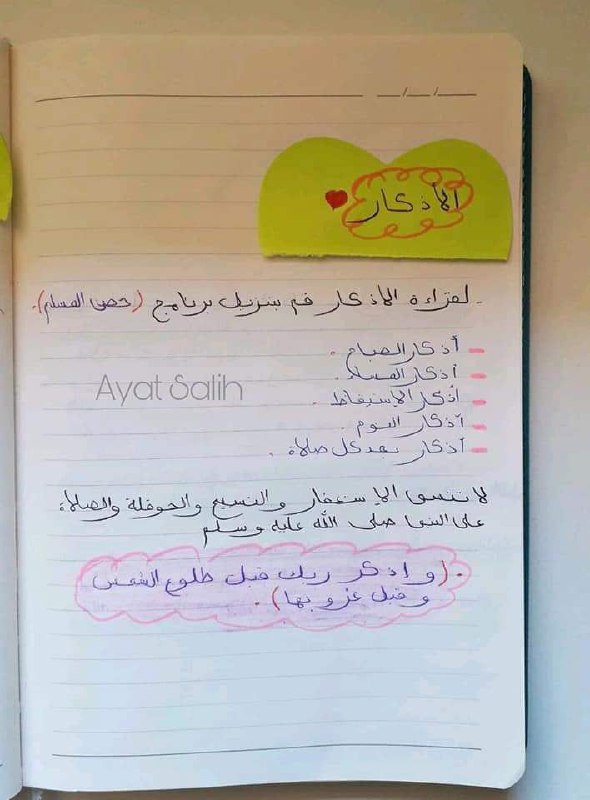 الأذكار
- لقراءة الأذكار قم بتنزيل برنامج (حصن المسلم).
- أذكار الصباح.
- أذكار المساء.
- أذكار الإستيقاظ.
- أذكار النوم.
- أذكار بعد كل صلاة.
Ayat Salih
لا ننسى الإستغفار والتسبيح والحوقلة والصلاة
على النبي صلى الله عليه وسلم
. (واذكر ربك قبل طلوع الشمس
وقبل غروبها).